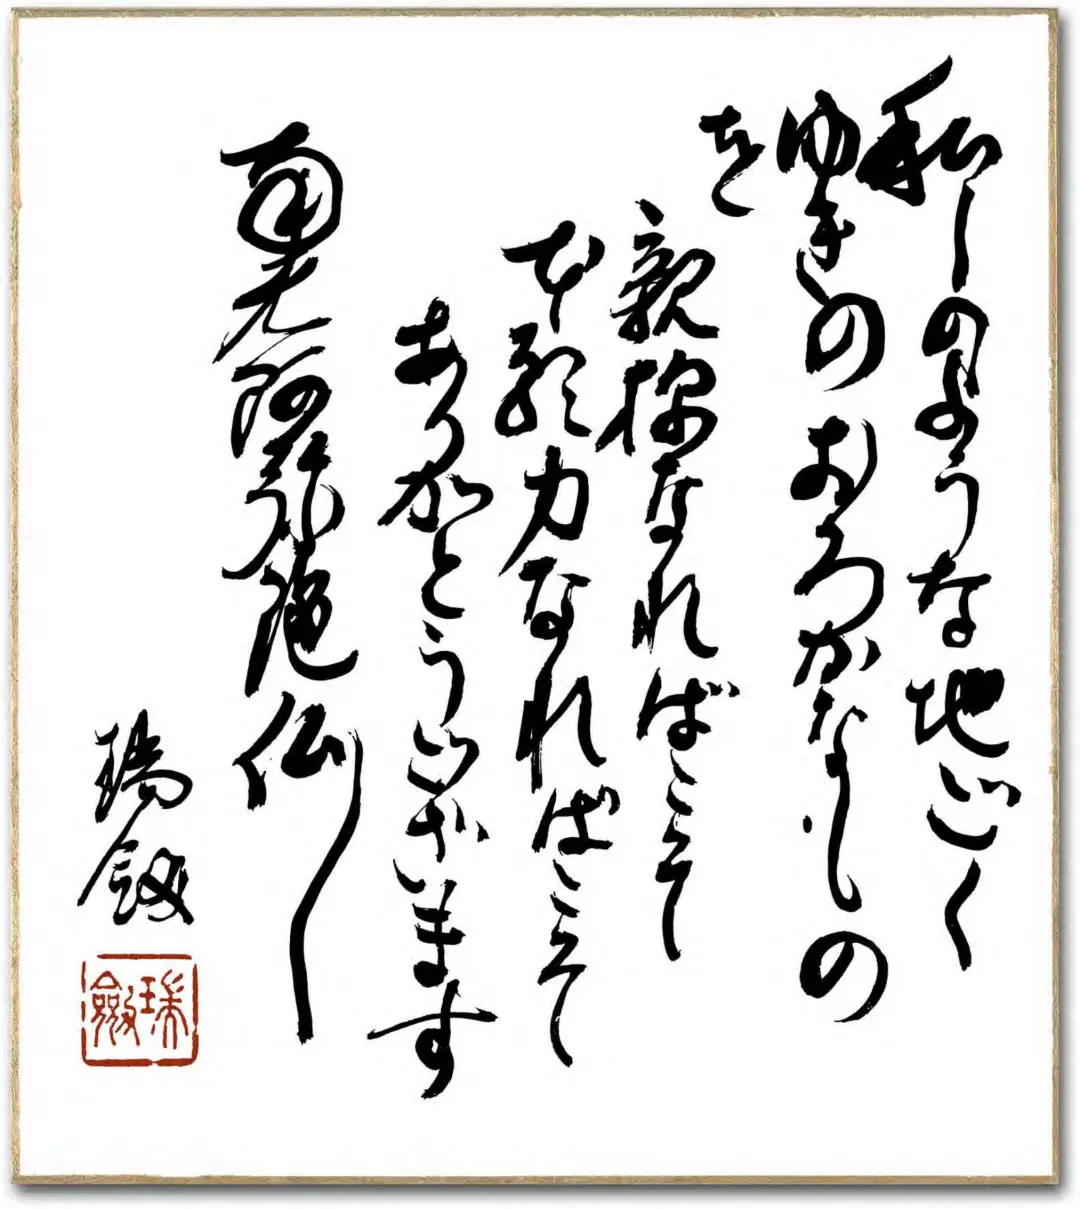 私しのような地ごく
ゆきのおろかなもの
を
親様なればこそ
本願力なればこそ
ありがとうございます
南无阿弥陀仏
瑞剱